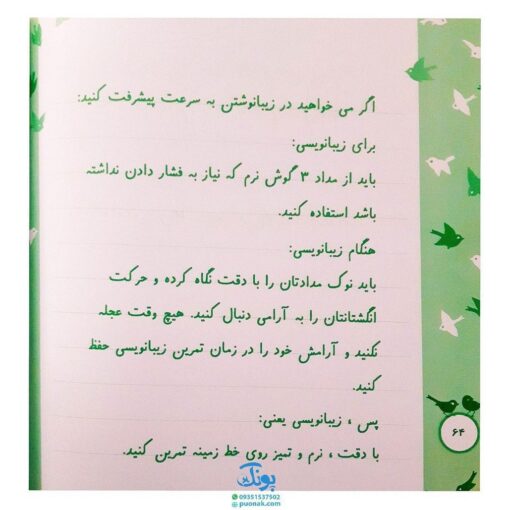 اگر می خواهید در زیبانوشتن به سرعت پیشرفت کنید:
برای زیبانویسی:
باید از مداد ۳ گوش نرم که نیاز به فشار دادن نداشته
باشد استفاده کنید.
هنگام زیبانویسی:
باید نوک مدادتان را با دقت نگاه کرده و حرکت
انگشتانتان را به آرامی دنبال کنید. هیچ وقت عجله
نکنید و آرامش خود را در زمان تمرین زیبانویسی حفظ
کنید.
پس ، زیبانویسی یعنی:
با دقت ، نرم و تمیز روی خط زمینه تمرین کنید.
۶۴
پونک
09351537502
puonak.com